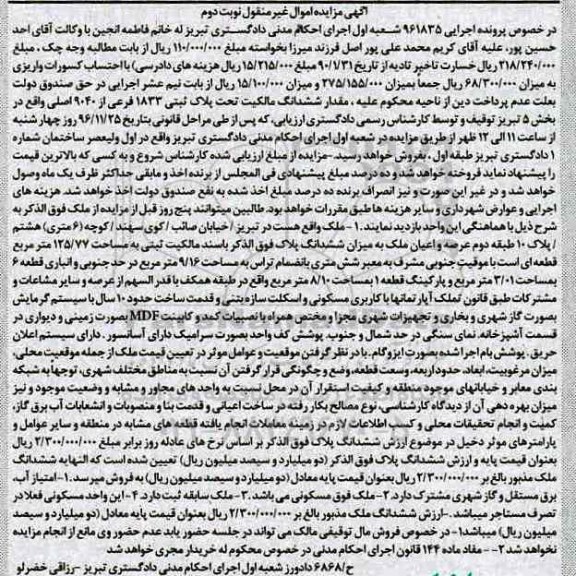 آگهی مزایده اموال غیر منقول نوبت دوم
در خصوص پرونده اجرایی ۹۶۱۸۳۵ شعبه اول اجرای احکام مدنی دادگستری تبریز له خانم فاطمه انجین با وکالت آقای احد
حسین پور، علیه آقای کریم محمد علی پور اصل فرزند میرزا بخواسته مبلغ ۱۱۰/۰۰۰/۰۰۰ ریال از بابت مطالبه وجه چک ، مبلغ
۲۱۸/۲۴۰/۰۰۰ ریال خسارت تاخیر تادیه از تاریخ ۹۰/۱/۳۱ مبلغ ۱۵/۲۱۵/۰۰۰ ریال هزینه های دادرسی) با احتساب کسورات واریزی
به میزان ۶۸/۳۰۰/۰۰۰ ریال جمعا بمیزان ۲۷۵/۱۵۵/۰۰۰ و ۱۵/۱۰۰/۰۰۰ ریال از بابت نیم عشر اجرایی در حق صندوق دولت
بعلت عدم پرداخت دین از ناحیه محکوم علیه ، مقدار ششدانگ مالکیت تحت پلاک ثبتی ۱۸۳۳ فرعی از ۹۰۴۰ اصلی واقع در
بخش ۵ تبریز توقیف و توسط کارشناس رسمی دادگستری ارزیابی، که پس از طی مراحل قانونی بتاریخ ۹۶/۱۱/۲۵ روز چهار شنبه
از ساعت ۱۱ الی ۱۲ ظهر از طریق مزایده در شعبه اول اجرای احکام مدنی دادگستری تبریز واقع در اول ولیعصر ساختمان شماره
۱ دادگستری تبریز طبقه اول ، بفروش خواهد رسید. -مزایده از مبلغ ارزیابی شده کارشناس شروع و به کسی که بالاترین قیمت
را پیشنهاد نماید فروخته خواهد شد و ده درصد مبلغ پیشنهادی فی المجلس از برنده اخذ و مابقی حداکثر ظرف یک ماه وصول
خواهد شد و در غیر این صورت و نیز انصراف برنده ده درصد مبلغ اخذ شده به نفع صندوق دولت اخذ خواهد شد. هزینه های
اجرایی و عوارض شهرداری و سایر هزینه ها طبق مقررات خواهد بود. طالبین میتوانند پنج روز قبل از مزایده از ملک فوق الذکر به
شرح ذیل با هماهنگی این واحد بازدید نمایند. ۱ - ملک واقع هست در تبریز / خیابان صائب / کوی سهند / کوچه (۶ متری) هشتم
/ پلاک ۱۰ طبقه دوم عرصه و اعیان ملک به میزان ششدانگ پلاک فوق الذکر باسند مالکیت ثبتی به مساحت ۱۲۵/۷۷ متر مربع
قطعه ای است با موقیت جنوبی مشرف به معبر شش متری بانضمام تراس به مساحت ۹/۱۶ متر مربع در حد جنوبی و انباری قطعه ۶
بمساحت ۳/۰۱ متر مربع و پارکینگ قطعه ۱ بمساحت ۸/۱۰ متر مربع واقع در طبقه همکف با قدر السهم از عرصه و سایر مشاعات و
مشترکات طبق قانون تملک آپارتمانها با کاربری مسکونی و اسکلت سازه بتنی و قدمت ساخت حدود ۱۰ سال با سیستم گرمایش
بصورت گاز شهری و بخاری و تجهیزات شهری مجزا و مختص همراه با نصبیات کمد و کابینت MDF بصورت زمینی و دیواری در
قسمت آشپزخانه. نمای سنگی در حد شمال و جنوب. پوشش کف واحد بصورت سرامیک دارای آسانسور . دارای سیستم اعلان
حریق . پوشش بام اجرا شده بصورت ایزوگام. با در نظر گرفتن موقعیت و عوامل موثر در تعیین قیمت ملک از جمله موقعیت محلی،
میزان مرغوبیت، ابعاد، حدود اربعه، وسعت قطعه، وضع و چگونگی قرار گرفتن آن نسبت به مناطق مختلف شهری، توجها به شبکه
بندی معابر و خیابانهای موجود منطقه و کیفیت استقرار آن در محل نسبت به واحد های مجاور و مشابه و وضعیت موجود و نیز
میزان بهره دهی آن از دیدگاه کارشناسی، نوع مصالح بکار رفته در ساخت اعیانی و قدمت بنا و منصوبات و انشعابات آب برق گاز،
کمیت و انجام تحقیقات محلی و کسب اطلاعات لازم در زمینه معاملات انجام یافته قطعه های مشابه در منطقه و سایر عوامل و
پارامترهای موثر دخیل در موضوع ارزش ششدانگ پلاک فوق الذکر بر اساس نرخ های عادله روز برابر مبلغ ۲/۳۰۰/۰۰۰/۰۰۰ ریال
بعنوان قیمت پایه و ارزش ششدانگ پلاک فوق الذکر (دو میلیارد و سیصد میلیون ریال) تعیین شده است که النهایه ششدانگ
ملک مذبور بالغ بر ۲/۳۰۰/۰۰۰/۰۰۰ ریال بعنوان قیمت پایه معادل (دو میلیارد و سیصد میلیون ریال) به فروش میرسد. ۱- امتیاز آب،
برق مستقل و گاز شهری مشترک دارد. ۲ - ملک فوق مسکونی می باشد. ۳ - ملک سابقه ثبت دارد. ۴ - این واحد مسکونی فعلا در
تصرف مستاجر میباشد. -ارزش ششدانگ ملک مذبور بالغ بر ۲/۳۰۰/۰۰۰/۰۰۰ ریال بعنوان قیمت پایه معادل (دو میلیارد و سیصد
میلیون ریال) میباشد ۱- در خصوص فروش مال توقیفی مالک می تواند در جلسه حضور یابد عدم حضور وی مانع از انجام مزایده
نخواهد شد ۲ - - مفاد ماده ۱۴۴ قانون اجرای احکام مدنی در خصوص محکوم له خریدار مجری خواهد شد
ح/۶۸۶۸ دادورز شعبه اول اجرای احکام مدنی دادگستری تبریز -رزاقی خضرلو